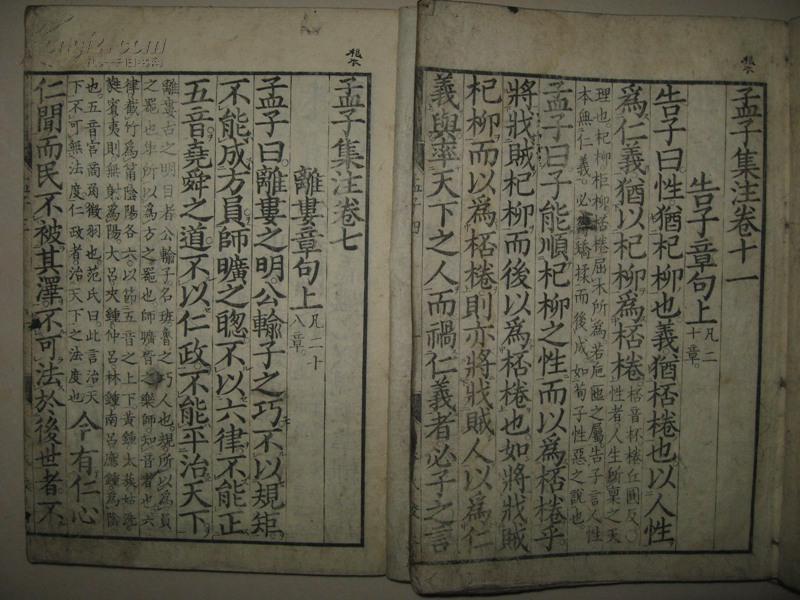 孟子集注卷十一
告子章句上 凡二十章
告子曰性猶杞柳也義猶桮棬也以人性
爲仁義猶以杞柳爲桮棬 桮音杯棬丘圓反○性者人生所稟之天
理也杞柳柜柳桮棬屈木所爲若巵匜之屬告子言人性
本無仁義必待矯揉而後成如荀子性惡之說也
孟子曰子能順杞柳之性而以爲桮棬乎
將戕賊杞柳而後以爲桮棬也如將戕賊
杞柳而以爲桮棬則亦將戕賊人以爲仁
義與率天下之人而禍仁義者必子之言
孟子集注卷七
離婁章句上 凡二十八章
孟子曰離婁之明公輸子之巧不以規矩
不能成方員師曠之聦不以六律不能正
五音堯舜之道不以仁政不能平治天下
離婁古之明目者公輸子名班魯之巧人也規所以爲員
之器也矩所以爲方之器也師曠晉之樂師知音者也六
律截竹爲筩陰陽各六以節五音之上下黃鍾太蔟姑洗
蕤賓夷則無射爲陽大呂夾鍾仲呂林鍾南呂應鍾爲陰
也五音宮商角徵羽也范氏曰此言治天
下不可無法度仁政者治天下之法度也 今有仁心
仁聞而民不被其澤不可法於後世者不